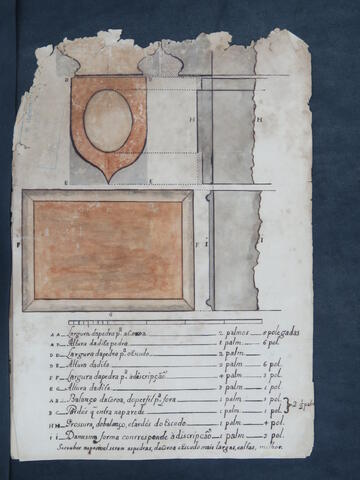 D D
H H
E E
F F I I
G
A A Largura dapedra pª aCoroa 2 palmos 0 polegadas
A B Altura dadita pedra 1 palm 6 pol
D D Largura dapedra pª oEscudo 2 palm
D E Altura dadita 2 palm 6 pol.
F F Largura dapedra pª adiscripção 4 palm 1 pol.
F G Altura dadita 2 palm
A B Balanço daCoroa, doperfil pª fora 1 palm 1 pol.
B Péides q̃ entra naparede 1 palm 1 pol. } 2 ½ palm
H H Grossura, dobalanço, elardós do Escudo 1 palm 4 pol.
I I Damesma forma corresponde àdiscripção 1 palm 2 pol.
Seouber naposivel serem aspedras, daCoroa eEscudo mais largas, ealtas, melhor.